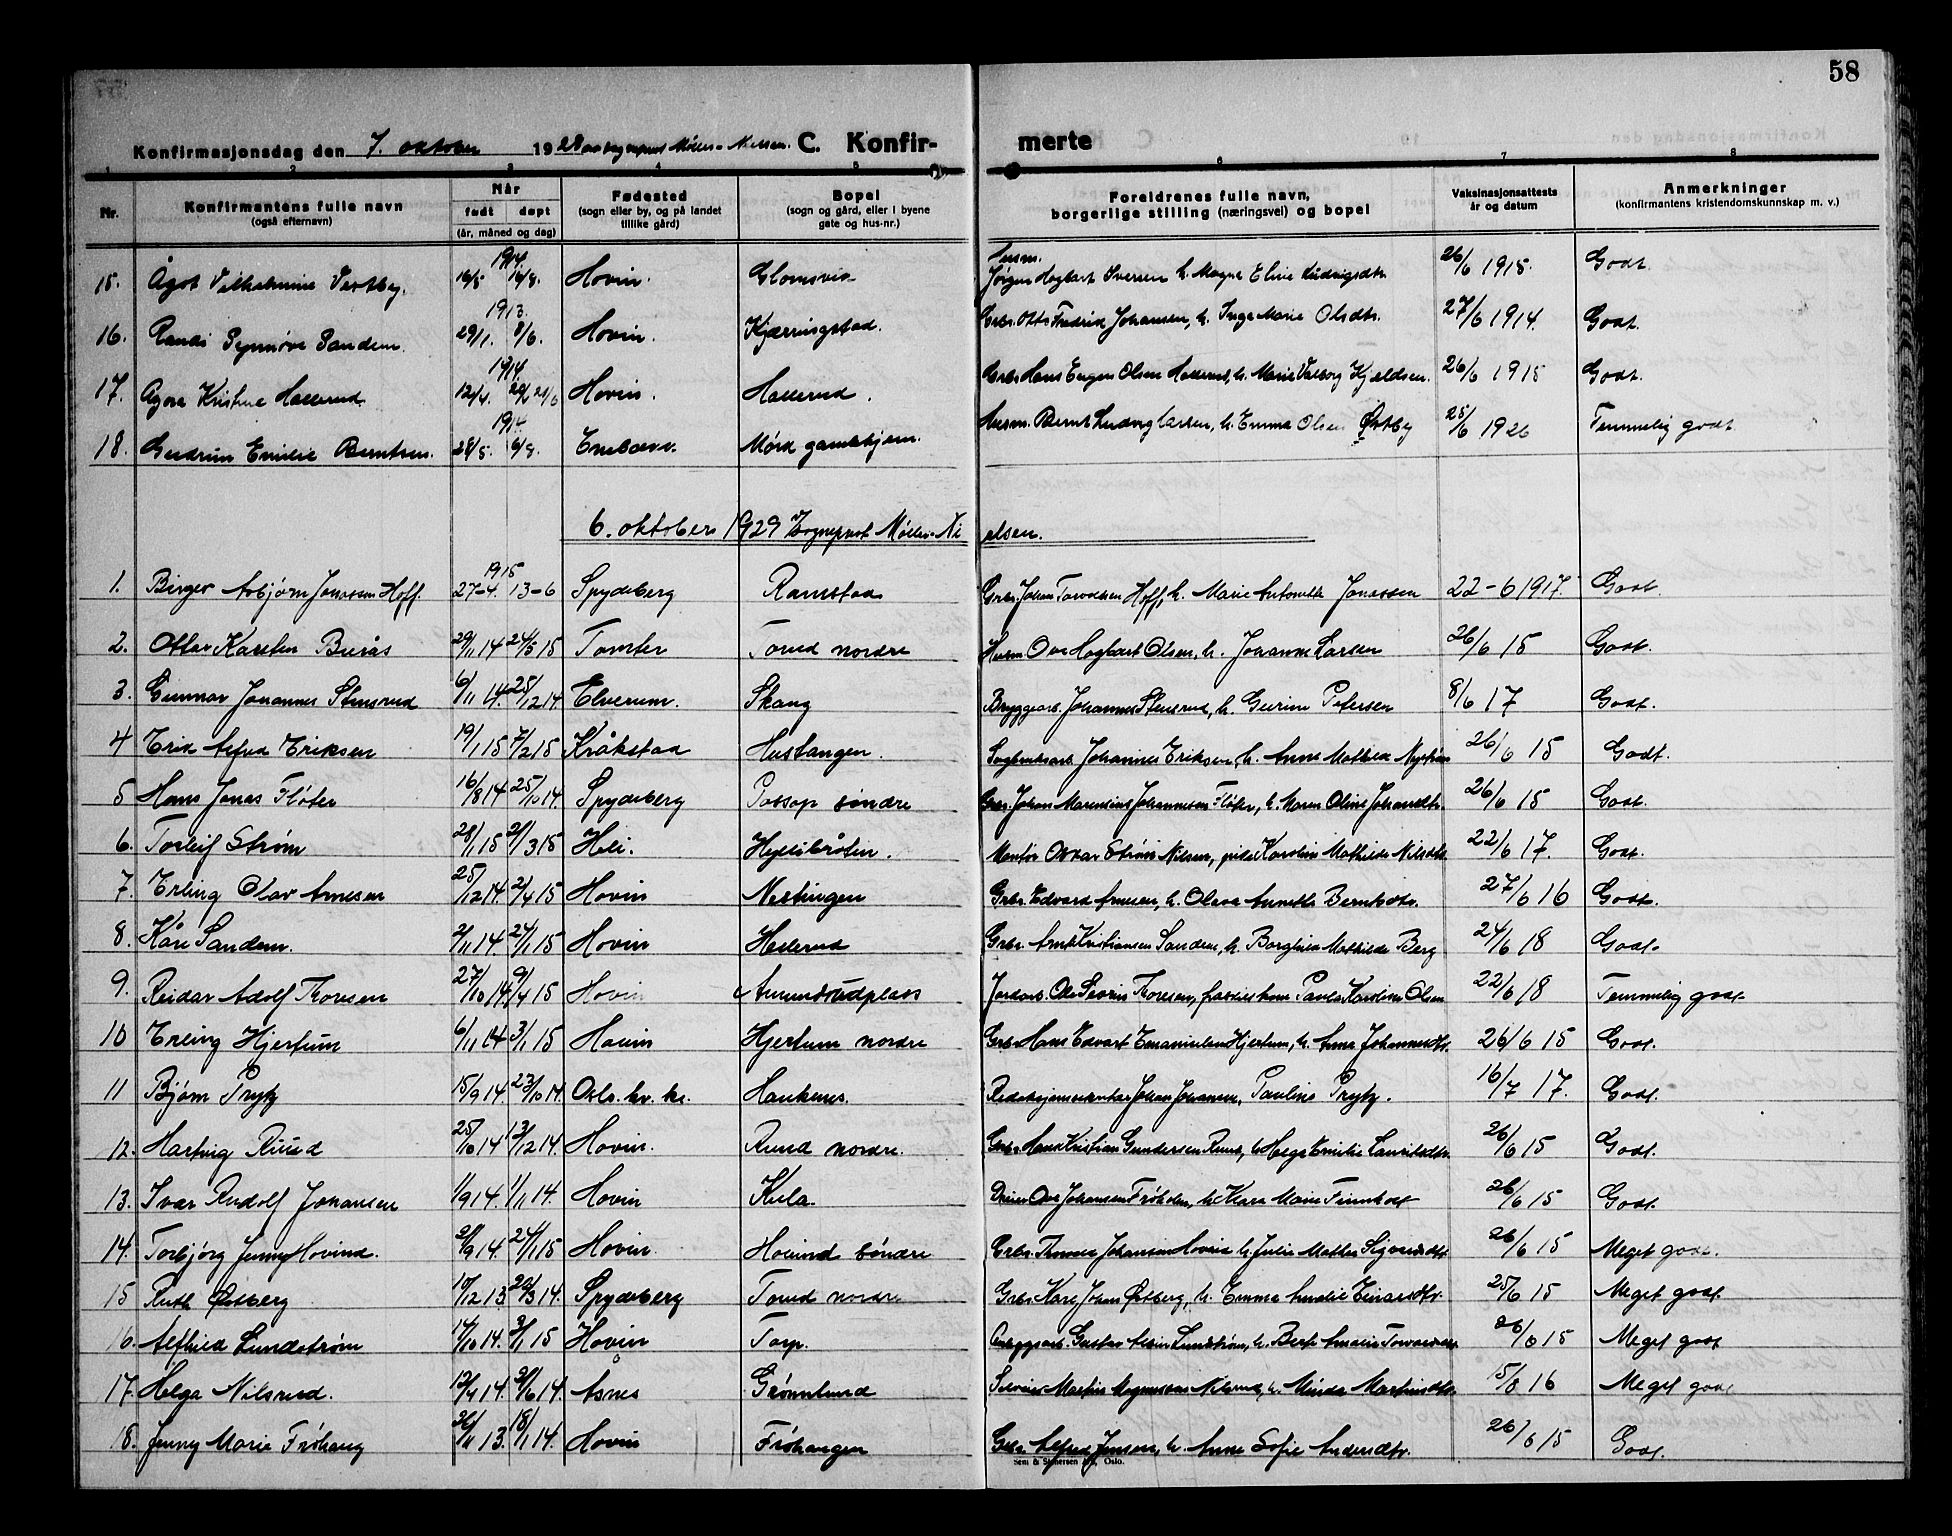 58
Konfirmasjonsdag den 7. oktober 1928 sogneprest Møller-Nielsen. C. Konfirmerte
1 2 3 4 5 6 7 8
Nr.
Konfirmantens fulle navn
(også efternavn)
Når
født døpt
(år, måned og dag)
Fødested
(sogn eller by, og på landet
tillike gård)
Bopel
(sogn og gård, eller i byene
gate og hus-nr.)
Foreldrenes fulle navn,
borgerlige stilling (næringsvei) og bopel
Vaksinasjonsattests
år og datum
Anmerkninger
(konfirmantens kristendomskunnskap m. v.)
15. Ågot Vilhelmine Vestby. 1914 16/5 16/8. Hovin. Glomsvik Husm. Jørgen Hagbart Iversen h. Magna Elvine Ludvigsdtr. 26/6 1915. Godt.
16. Randi Synnøve Sandem. 1913. 29/1. 8/6. Hovin. Kjærringstad. Grbr. Otto Fredrik Johansen, h. Inga Marie Olsdtr. 27/6 1914. Godt.
17. Agna Kristine Hallerud 1914. 12/4. 21/6 Hovin. Hallerud. Grbr. Hans Eugen Olsen Hallerud, h. Marie Valborg Kjeldsen. 26/6 1915 Godt.
18. Gudrun Emilie Berntsen. 1914. 28/5. 6/8. Enebakk. Mørk gamlehjem. Husm. Bernt Ludvig Larsen, h. Emma Olsen Østby 25/6 1926 Temmelig godt
6. oktober 1929 Sogneprest Møller-Nielsen.
1. Birger Asbjørn Jonassen Hoff. 1915 27-4. 13-6 Spydeberg Ramstad Grbr. Johan Torvaldsen Hoff, h. Marie Antonette Jonassen 22-6 1917. Godt.
2. Ottar Karsten Burås 29/11 14 24/5 15 Tomter Torud nordre Husm Ove Hagbart Olsen, h. Johanne Larsen 26/6 15 Godt.
3. Gunnar Johannes Stensrud 6/11 14. 25/12 14 Elverum. Skaug Bryggearb. Johannes Stensrud, h. Gurine Petersen 8/6 17 Godt.
4 Erik Alfred Eriksen 19/1 15 7/2 15 Kråkstad Huslangen. Sagbruksarb. Johannes Eriksen, h. Anne Mathilde Nystrøm 26/6 15 Godt.
5 Hans Jonas Fløter 16/8 14 25/10 14. Spydeberg Possop søndre Grbr. Johan Marensius Johannesen Fløter, h. Maren Oline Johansdtr. 26/6 15 Godt.
6. Torleif Strøm 28/1 15 21/3 15 Heli. Hyllibråten. Montør Oskar Strøm Nilsen, pike Karoline Mathilde Nilsdtr. 22/6 17. Godt.
7. Erling Olav Arnesen 25/12 14. 2/4 15 Hovin Nestingen Grbr. Edvard Arnesen, h. Olava Annette Berntsdtr. 27/6 16 Godt.
8. Kåre Sandem. 2/11 14. 24/1 15 Hovin Hallerud Grbr. Arne Kristiansen Sandem, h. Borghild Mathilde Berg 24/6 18 Godt.
9. Reidar Adolf Thoresen 27/10 14 9/4 15 Hovin Amundrudplass Jordarb. Ole Severin Thoresen, fraskilt kone Paula Karoline Olsen 22/6 18 Temmelig godt
10 Erling Hjertum 6/11 14 3/1 15 Hovin Hjertum nordre Grbr. Hans Edvart Emanuelsen Hjertum, h. Anna Johannesdtr. 26/6 15 Godt.
11 Bjørn Prytz 15/9 14. 23/10 14. Oslo. kv. kl. Haukenes. Redaksjonssekretær Johan Johansen, Pauline Prytz. 16/7 17. Godt.
12. Hartvig Ruud 25/10 14 13/12 14. Hovin. Ruud nordre. Grbr. Hans Kristian Gundersen Ruud, h. Helga Emilie Lauritsdtr. 26/6 15 Godt.
13. Ivar Rudolf Johansen 1/9 14. 1/11 14. Hovin Kula Ove Johansen Frøhden, h. Klara Marie 26/6 15 Godt.
14. Torbjørg Jenny Hovind. 21/9 14. 24/1 15 Hovin. Hovind søndre Grbr. Thomas Johansen Hovin h. Julie Mathea Sigvardsdtr. 26/6 15 Meget godt.
15 Ruth Østberg 10/12 13 22/3 14. Spydeberg Torud nordre Grbr. Karl Johan Østberg, h. Emma Amalie Einarsdtr. 25/6 15 Meget godt
16. Alfhild Lundstrøm 14/10 14. 3/1 15 Hovin Torp. Anleggsarb. Gustav Alvin Lundstrøm, h. Berta Amalie Torvaldsdtr. 26/6 15 Meget godt
17. Helga Nilsrud. 12/4 14. 21/6 14. Åsnes Grønnlund Martin Magnussen Nilsrud, h. Minda Martinsdtr. 15/8 16 Meget godt
18. Jenny Marie Frøhaug 26/11 13. 18/1 14. Hovin Frøhaugen Grbr. Alfred Jensen, h. Anna Sofie Andersdtr. 26/6 15 Godt.
Sem & Stenersen A/S, Oslo.